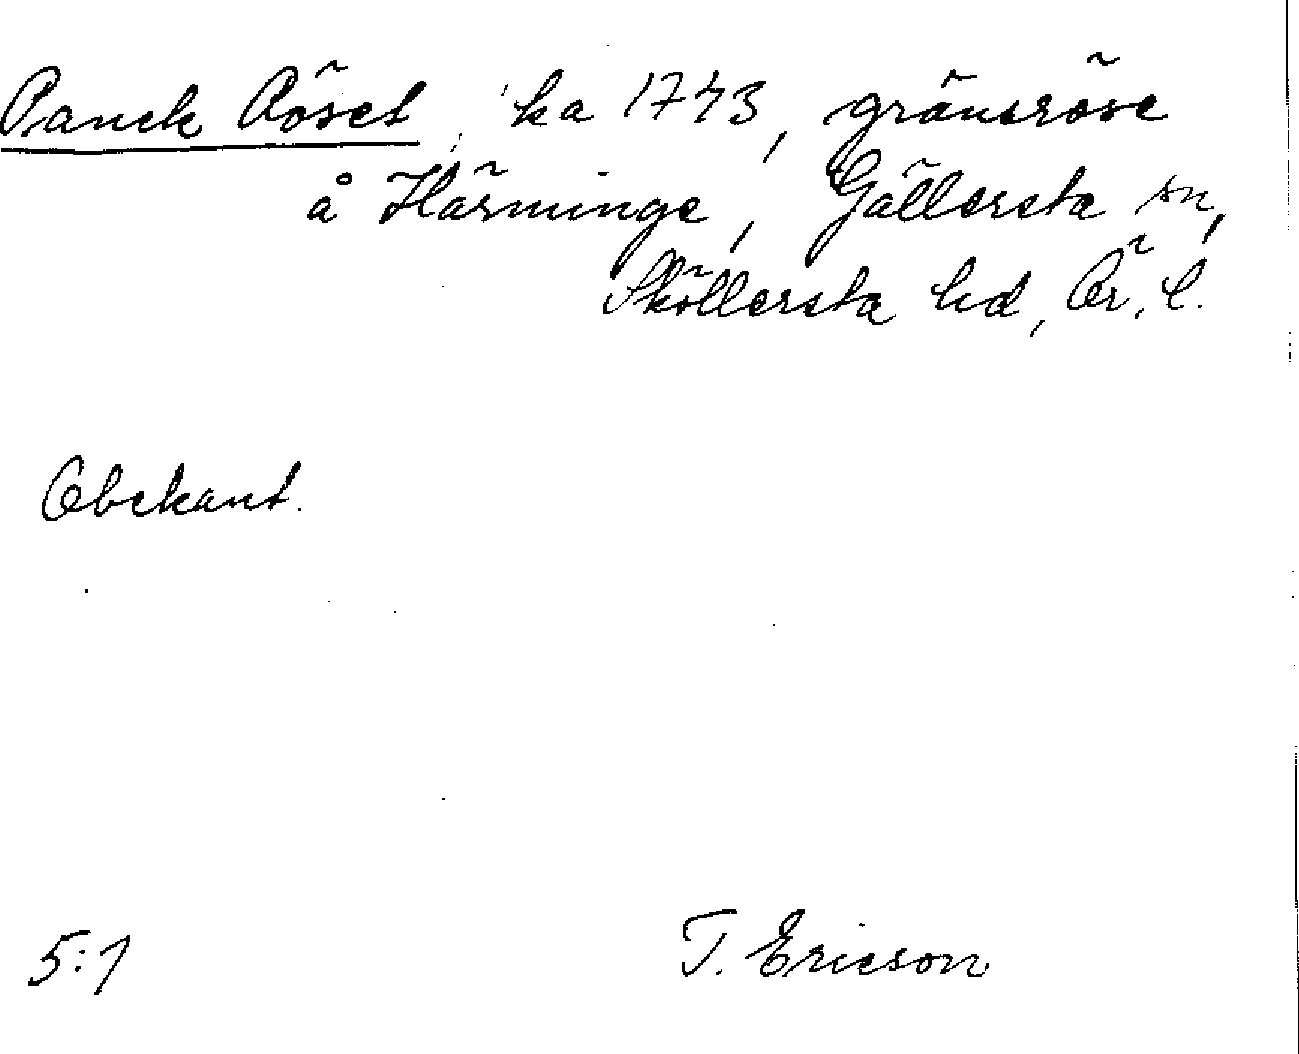 Panck Röset, ka 1743, gränsröse
å Härminge, Gällersta sn,
Sköllersta hd, Ör. l.
Obekant.
5:1
T. Ericson